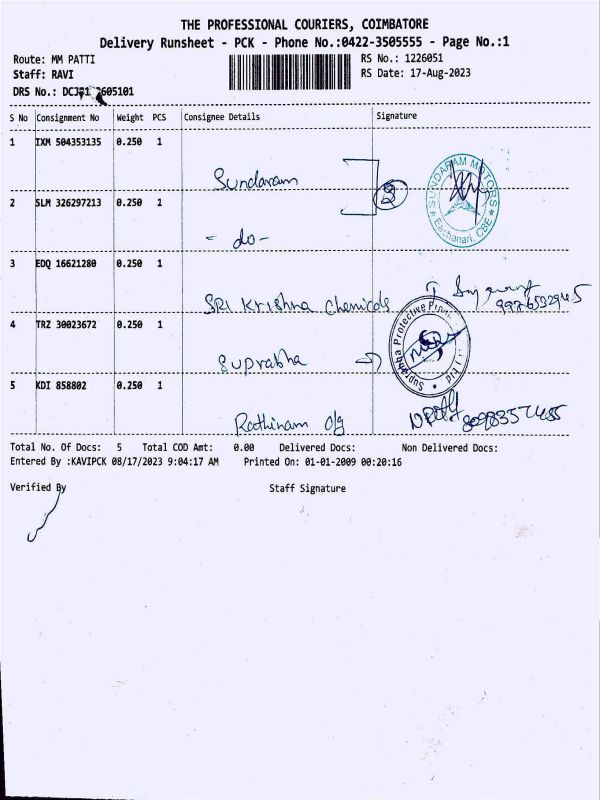 THE PROFESSIONAL COURIERS, COIMBATORE
Delivery Runsheet - PCK - Phone No.:0422-3505555 - Page No.:1
Route: MM PATTI
Staff: RAVI
DRS No.: 2605101
RS No.: 1226051
RS Date: 17-Aug-2023
S No Consignment No Weight PCS Consignee Details Signature
1 IXM 504353135 0.250 1
Sundaram
SUNDARAM MOTORS
Eachanari, CBE
2 SLM 326297213 0.250 1
- do -
3 EDQ 16621280 0.250 1
SRI Krishna Chemicals
4 TRZ 30023672 0.250 1
Suprabha
Suprabha Protective
5 KDI 858802 0.250 1
Rathinam o/g
Total No. Of Docs: 5 Total COD Amt: 0.00 Delivered Docs: Non Delivered Docs:
Entered By :KAVIPCK 08/17/2023 9:04:17 AM Printed On: 01-01-2009 00:20:16
Verified By Staff Signature